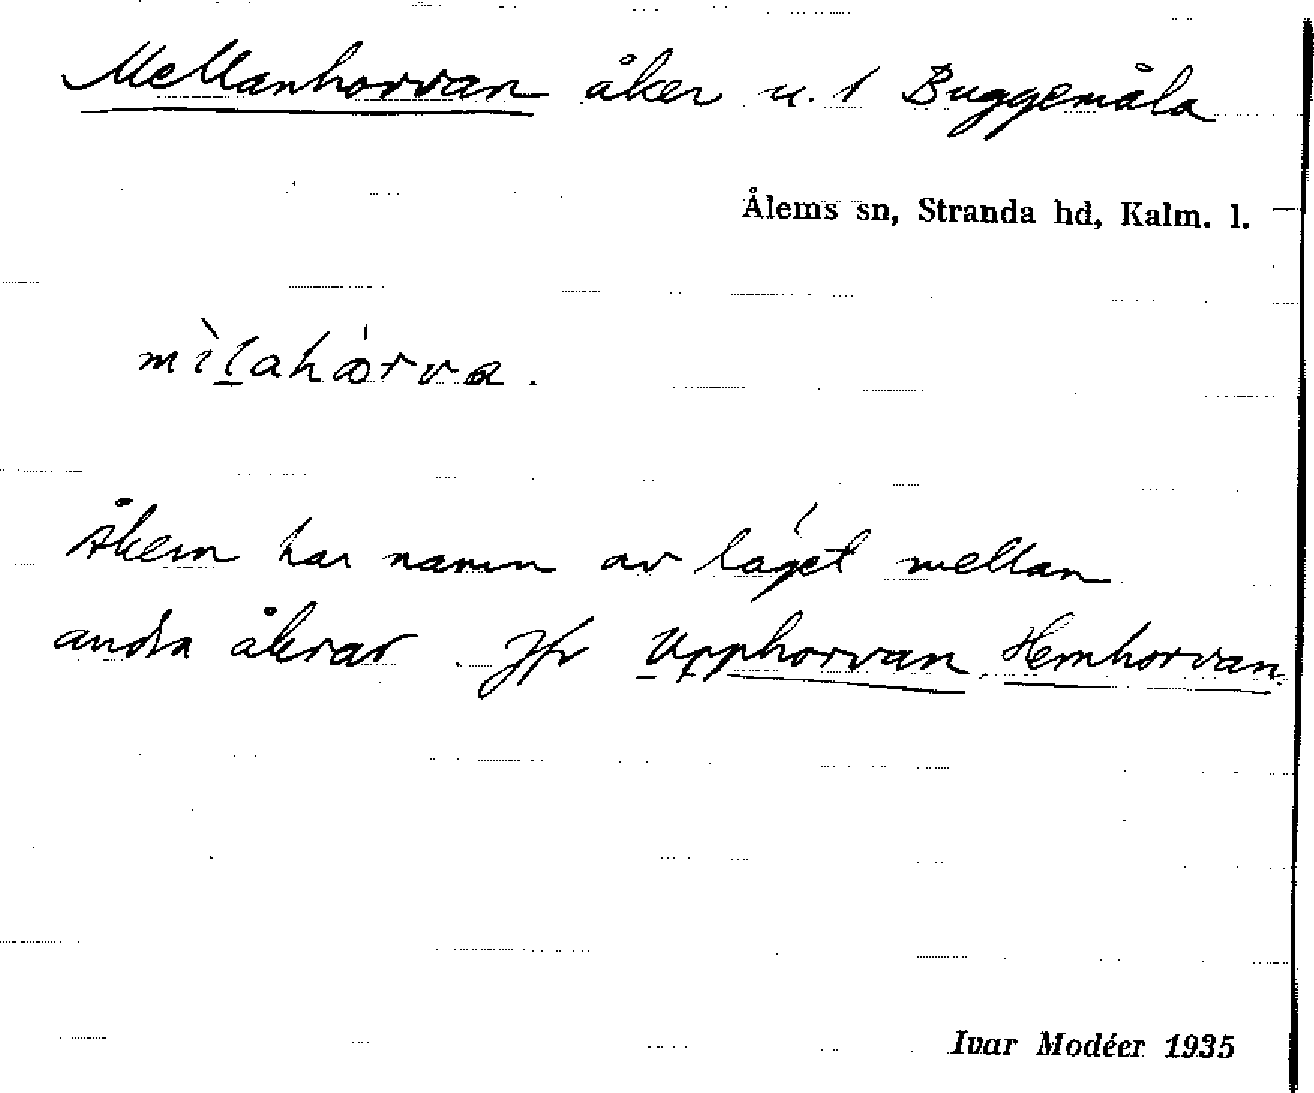 Mellanhorvan åker u. 1 Buggemåla
Ålems sn, Stranda hd, Kalm. l.
Åkern har namn av läget mellan
andra åkrar. Jfr Upphorvan Hemhorvan.
Ivar Modéer 1935